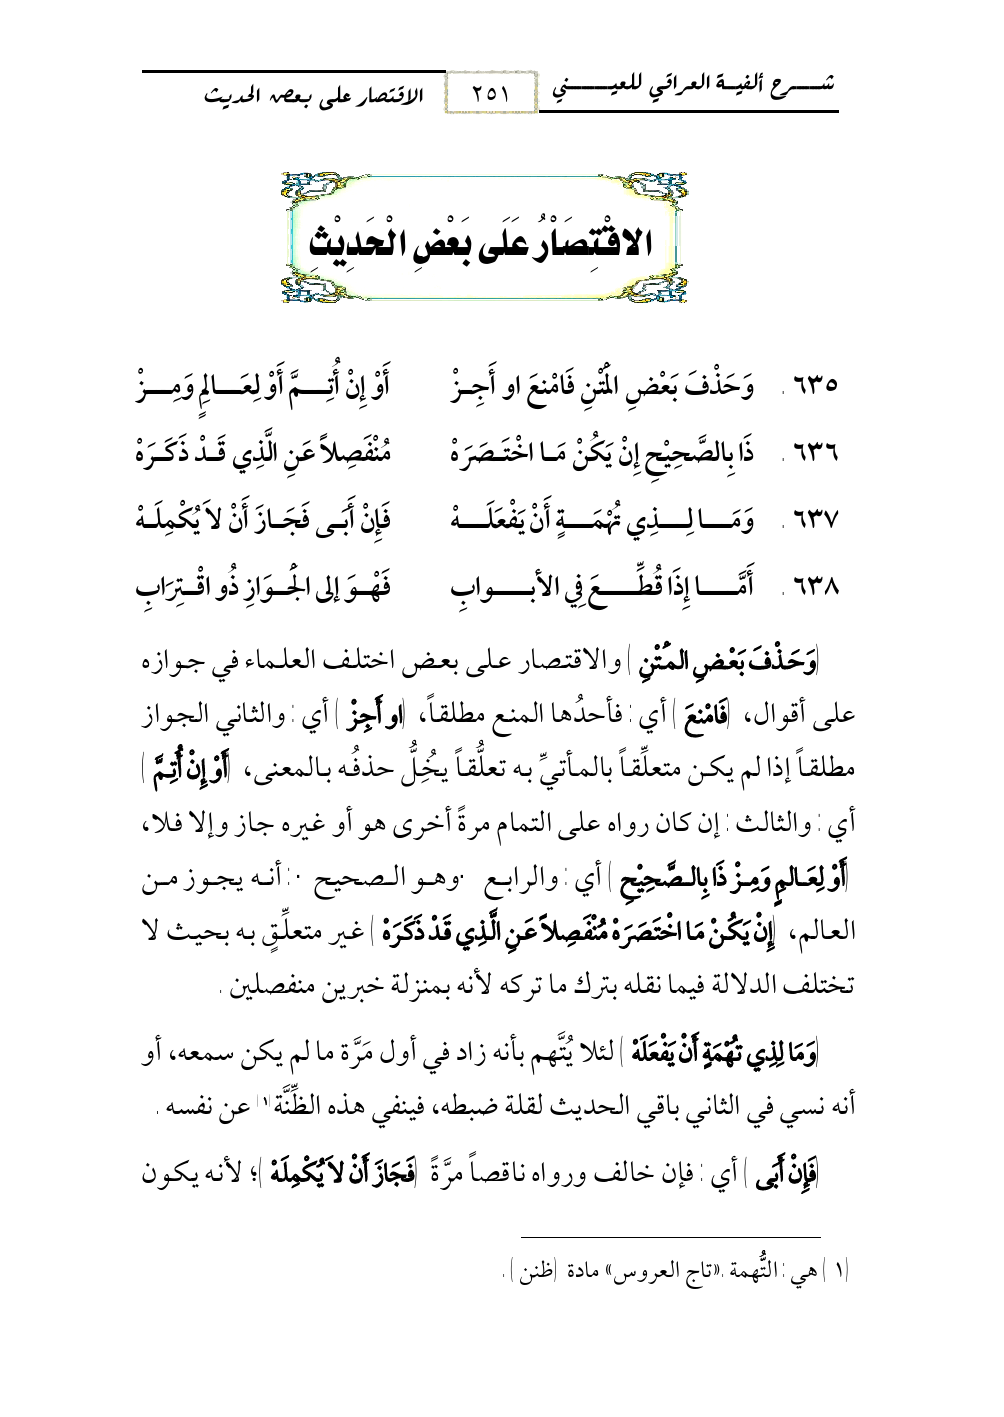 شـــرح ألفيـة العراقي للعيـــــني
٢٥١
الاقتصار على بعض الحديث
الاقْتِصَاْرُ عَلَى بَعْضِ الْحَدِيْثِ
٦٣٥ . وَحَذْفَ بَعْضِ المَتْنِ فَامْنعَ او أَجِـزْ أَوْ إِنْ أُتِـــمَّ أَوْ لِعَـــالِمٍ وَمِـــزْ
٦٣٦ . ذَا بِالصَّحِيْحِ إِنْ يَكُنْ مَـا اخْتَـصَرَهْ مُنْفَصِلاً عَنِ الَّذِي قَـدْ ذَكَـرَهْ
٦٣٧ . وَمَـــا لِـــذِي تُهْمَـــةٍ أَنْ يَفْعَلَـــهْ فَإِنْ أَبَـى فَجَـازَ أَنْ لاَ يُكْمِلَـهْ
٦٣٨ . أَمَّـــا إِذَا قُطِّـــعَ فِي الأبـــوابِ فَهْـوَ إلى الجَـوَازِ ذُو اقْـتِرَابِ
(وَحَذْفَ بَعْضِ المَتْنِ) والاقتصار على بعض اختلف العلماء في جوازه
على أقوال، (فَامْنعَ) أي: فأحدُها المنع مطلقاً، (او أَجِزْ) أي: والثاني الجواز
مطلقاً إذا لم يكن متعلِّقاً بالمأتيِّ به تعلُّقاً يخُِلُّ حذفُه بالمعنى، (أَوْ إِنْ أُتِمَّ)
أي: والثالث: إن كان رواه على التمام مرةً أخرى هو أو غيره جاز وإلا فلا،
(أَوْ لِعَالمٍ وَمِزْ ذَا بِالصَّحِيْحِ) أي: والرابع -وهو الصحيح-: أنه يجوز من
العالم، (إِنْ يَكُنْ مَا اخْتَصَرَهْ مُنْفَصِلاً عَنِ الَّذِي قَدْ ذَكَرَهْ) غير متعلِّقٍ به بحيث لا
تختلف الدلالة فيما نقله بترك ما تركه لأنه بمنزلة خبرين منفصلين .
(وَمَا لِذِي تُهْمَةٍ أَنْ يَفْعَلَهْ) لئلا يُتَّهم بأنه زاد في أول مَرَّة ما لم يكن سمعه، أو
أنه نسي في الثاني باقي الحديث لقلة ضبطه، فينفي هذه الظِّنَّة(١) عن نفسه .
(فَإِنْ أَبَى) أي: فإن خالف ورواه ناقصاً مرَّةً (فَجَازَ أَنْ لاَ يُكْمِلَهْ)؛ لأنه يكون
(١) هي: التُّهمة .«تاج العروس» مادة (ظنن).